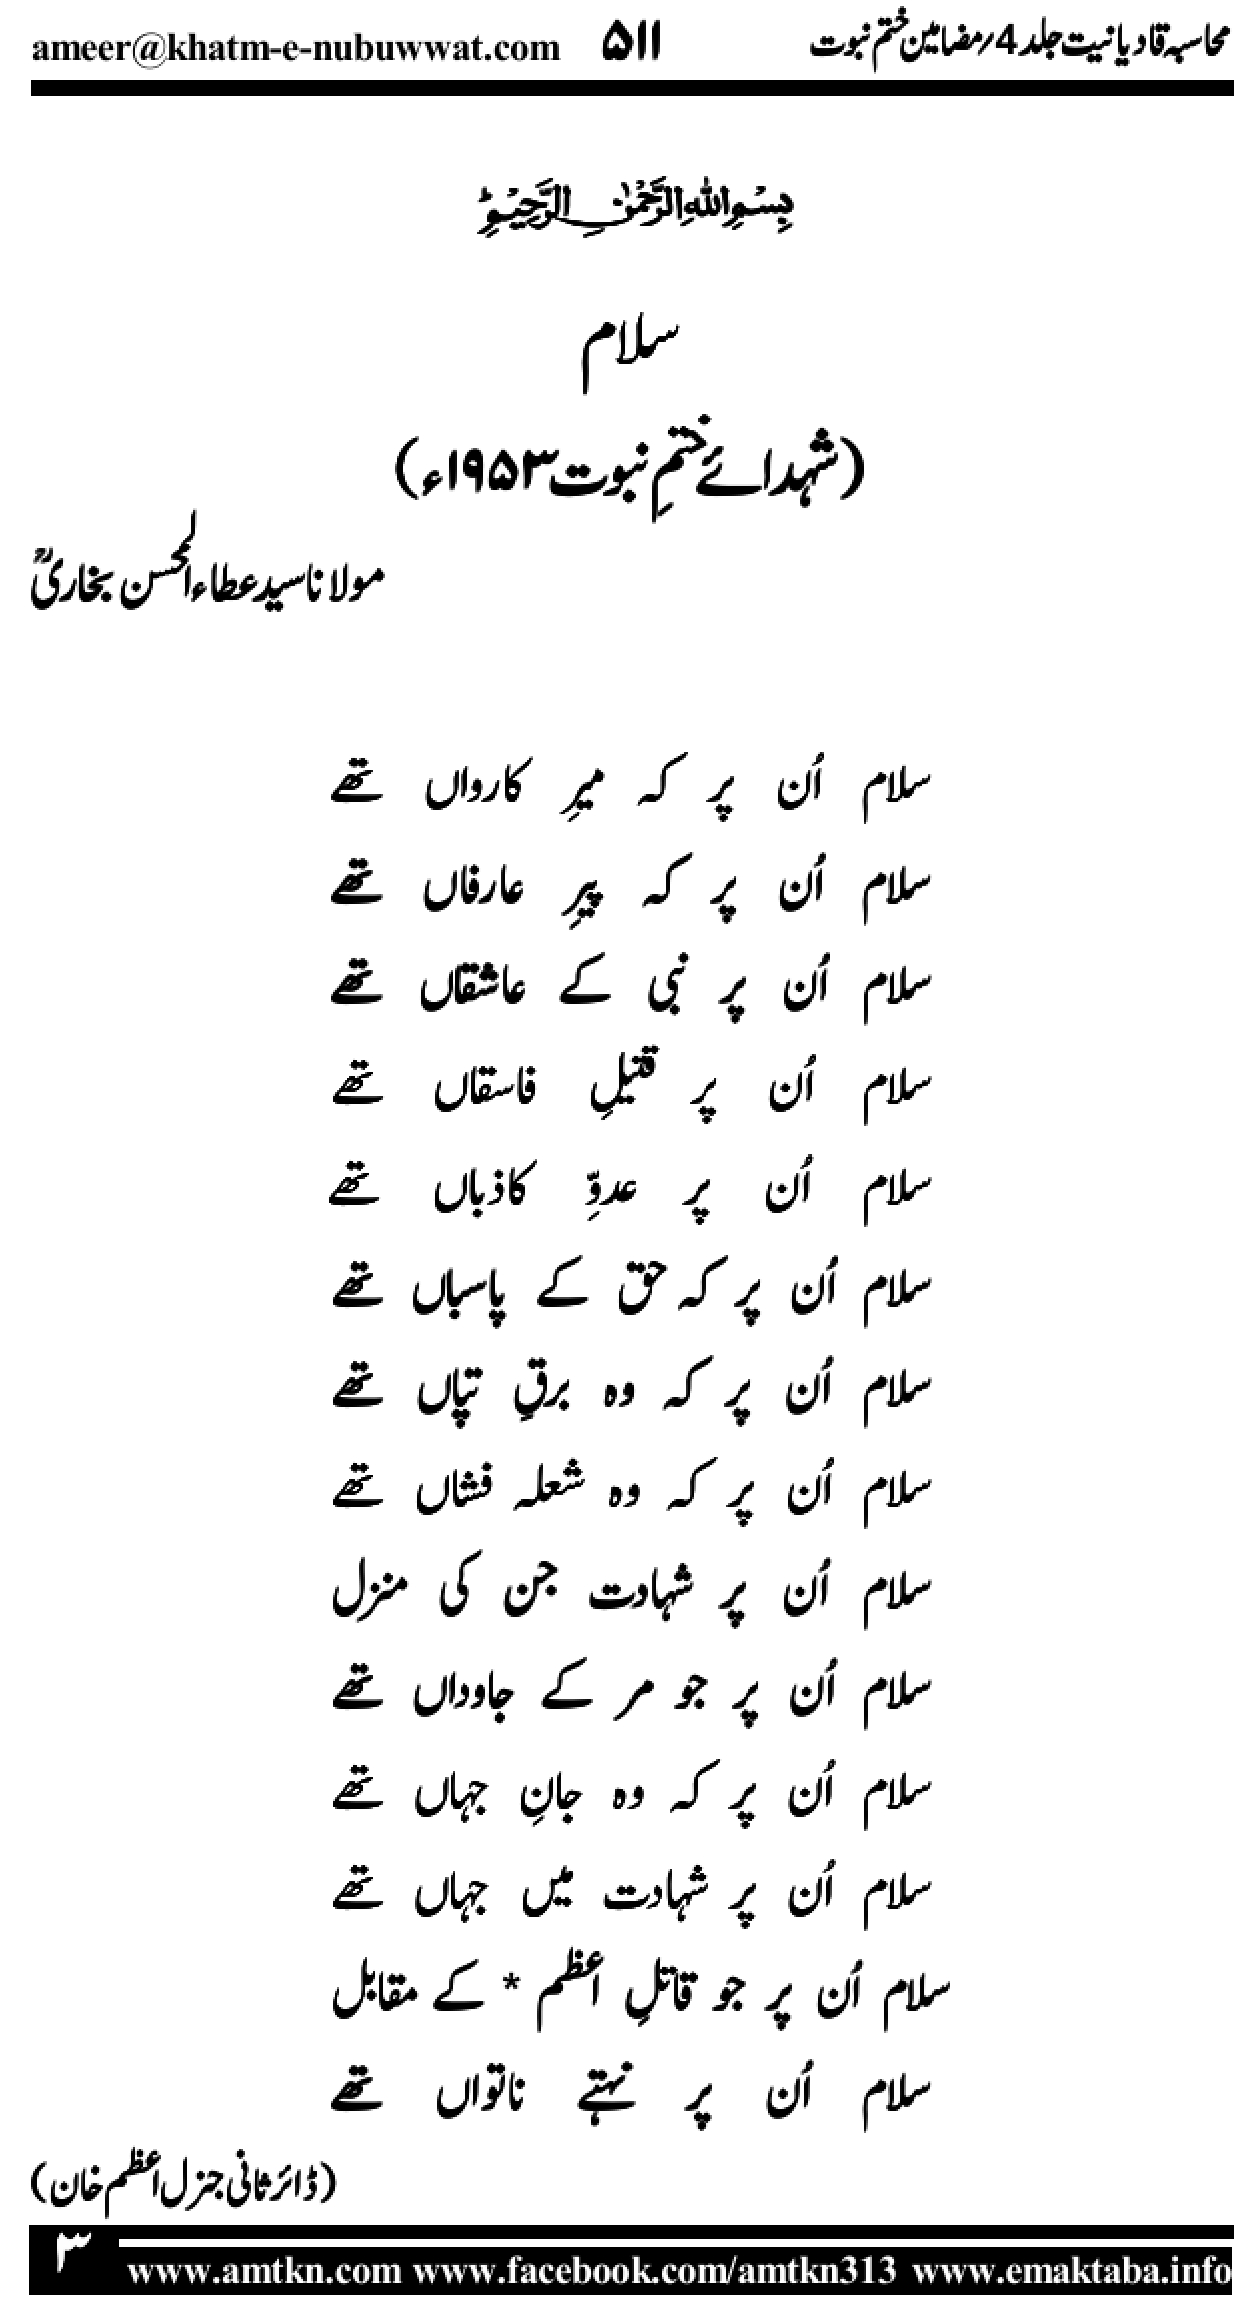 محاسبہ قادیانیت جلد 4/ مضامین ختم نبوت ۵۱۱ ameer@khatm-e-nubuwwat.com
بِسْمِ اللهِ الرَّحْمٰنِ الرَّحِيْمِ
سلام
(شہدائے ختمِ نبوت ۱۹۵۳ء)
مولانا سید عطاء المحسن بخاریؒ
سلام اُن پر کہ میرِ کارواں تھے
سلام اُن پر کہ پیرِ عارفاں تھے
سلام اُن پر نبی کے عاشقاں تھے
سلام اُن پر قتیلِ فاسقاں تھے
سلام اُن پر عدوِّ کاذباں تھے
سلام اُن پر کہ حق کے پاسباں تھے
سلام اُن پر کہ وہ برقِ تپاں تھے
سلام اُن پر کہ وہ شعلہ فشاں تھے
سلام اُن پر شہادت جن کی منزل
سلام اُن پر جو مر کے جاوداں تھے
سلام اُن پر کہ وہ جانِ جہاں تھے
سلام اُن پر شہادت میں جہاں تھے
سلام اُن پر جو قاتلِ اعظم * کے مقابل
سلام اُن پر نہتے ناتواں تھے
(ڈائر ثانی جنرل اعظم خان)
۳
www.amtkn.com www.facebook.com/amtkn313 www.emaktaba.info